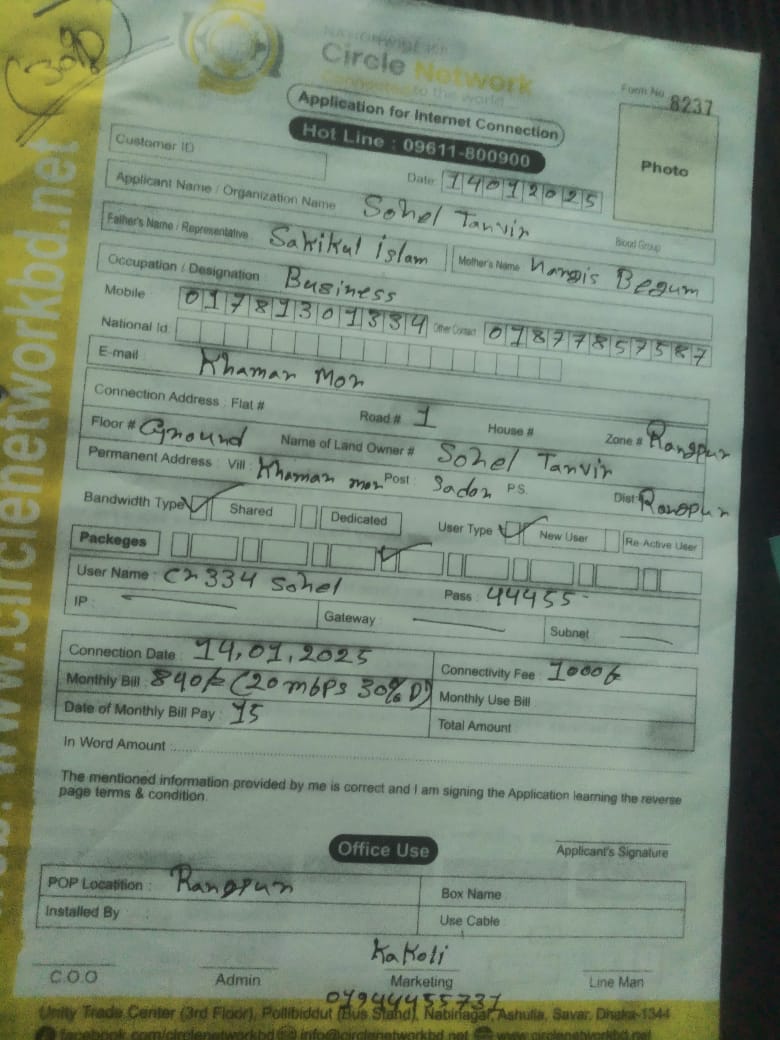 (30%D)
NATIONWIDE ISP
Circle Network
Connected to the world
Form No. 8237
Application for Internet Connection
Hot Line : 09611-800900
Photo
Customer ID
Date: 14012025
Applicant Name / Organization Name Sohel Tanvir
Blood Group
Father's Name / Representative Sakikul islam Mother's Name Nargis Begum
Occupation / Designation Business
Mobile 01789301334 Other Contact 01877857587
National Id
E-mail Khamar Mor
Connection Address : Flat # Road # 1 House # Zone # Rangpur
Floor # Ground Name of Land Owner # Sohel Tanvir
Permanent Address : Vill : Khamar mor Post : Sador P.S. Dist: Rangpur
Bandwidth Type Shared Dedicated User Type New User Re-Active User
Packeges
User Name : Cr334 Sohel Pass : 44455
IP : Gateway Subnet
Connection Date : 14.01.2025 Connectivity Fee : 1000/-
Monthly Bill : 840/- (20 mbps 30% D) Monthly Use Bill
Date of Monthly Bill Pay : 15 Total Amount
In Word Amount :
The mentioned information provided by me is correct and I am signing the Application learning the reverse
page terms & condition.
Applicant's Signature
Office Use
POP Locatition : Rangpur Box Name
Installed By Use Cable
Kakoli
C.O.O Admin Marketing Line Man
01944455731
Unity Trade Center (3rd Floor), Pollibiddut (Bus Stand), Nabinagar, Ashulia, Savar, Dhaka-1344
facebook.com/circlenetworkbd info@circlenetworkbd.net www.circlenetworkbd.net
www.circlenetworkbd.net